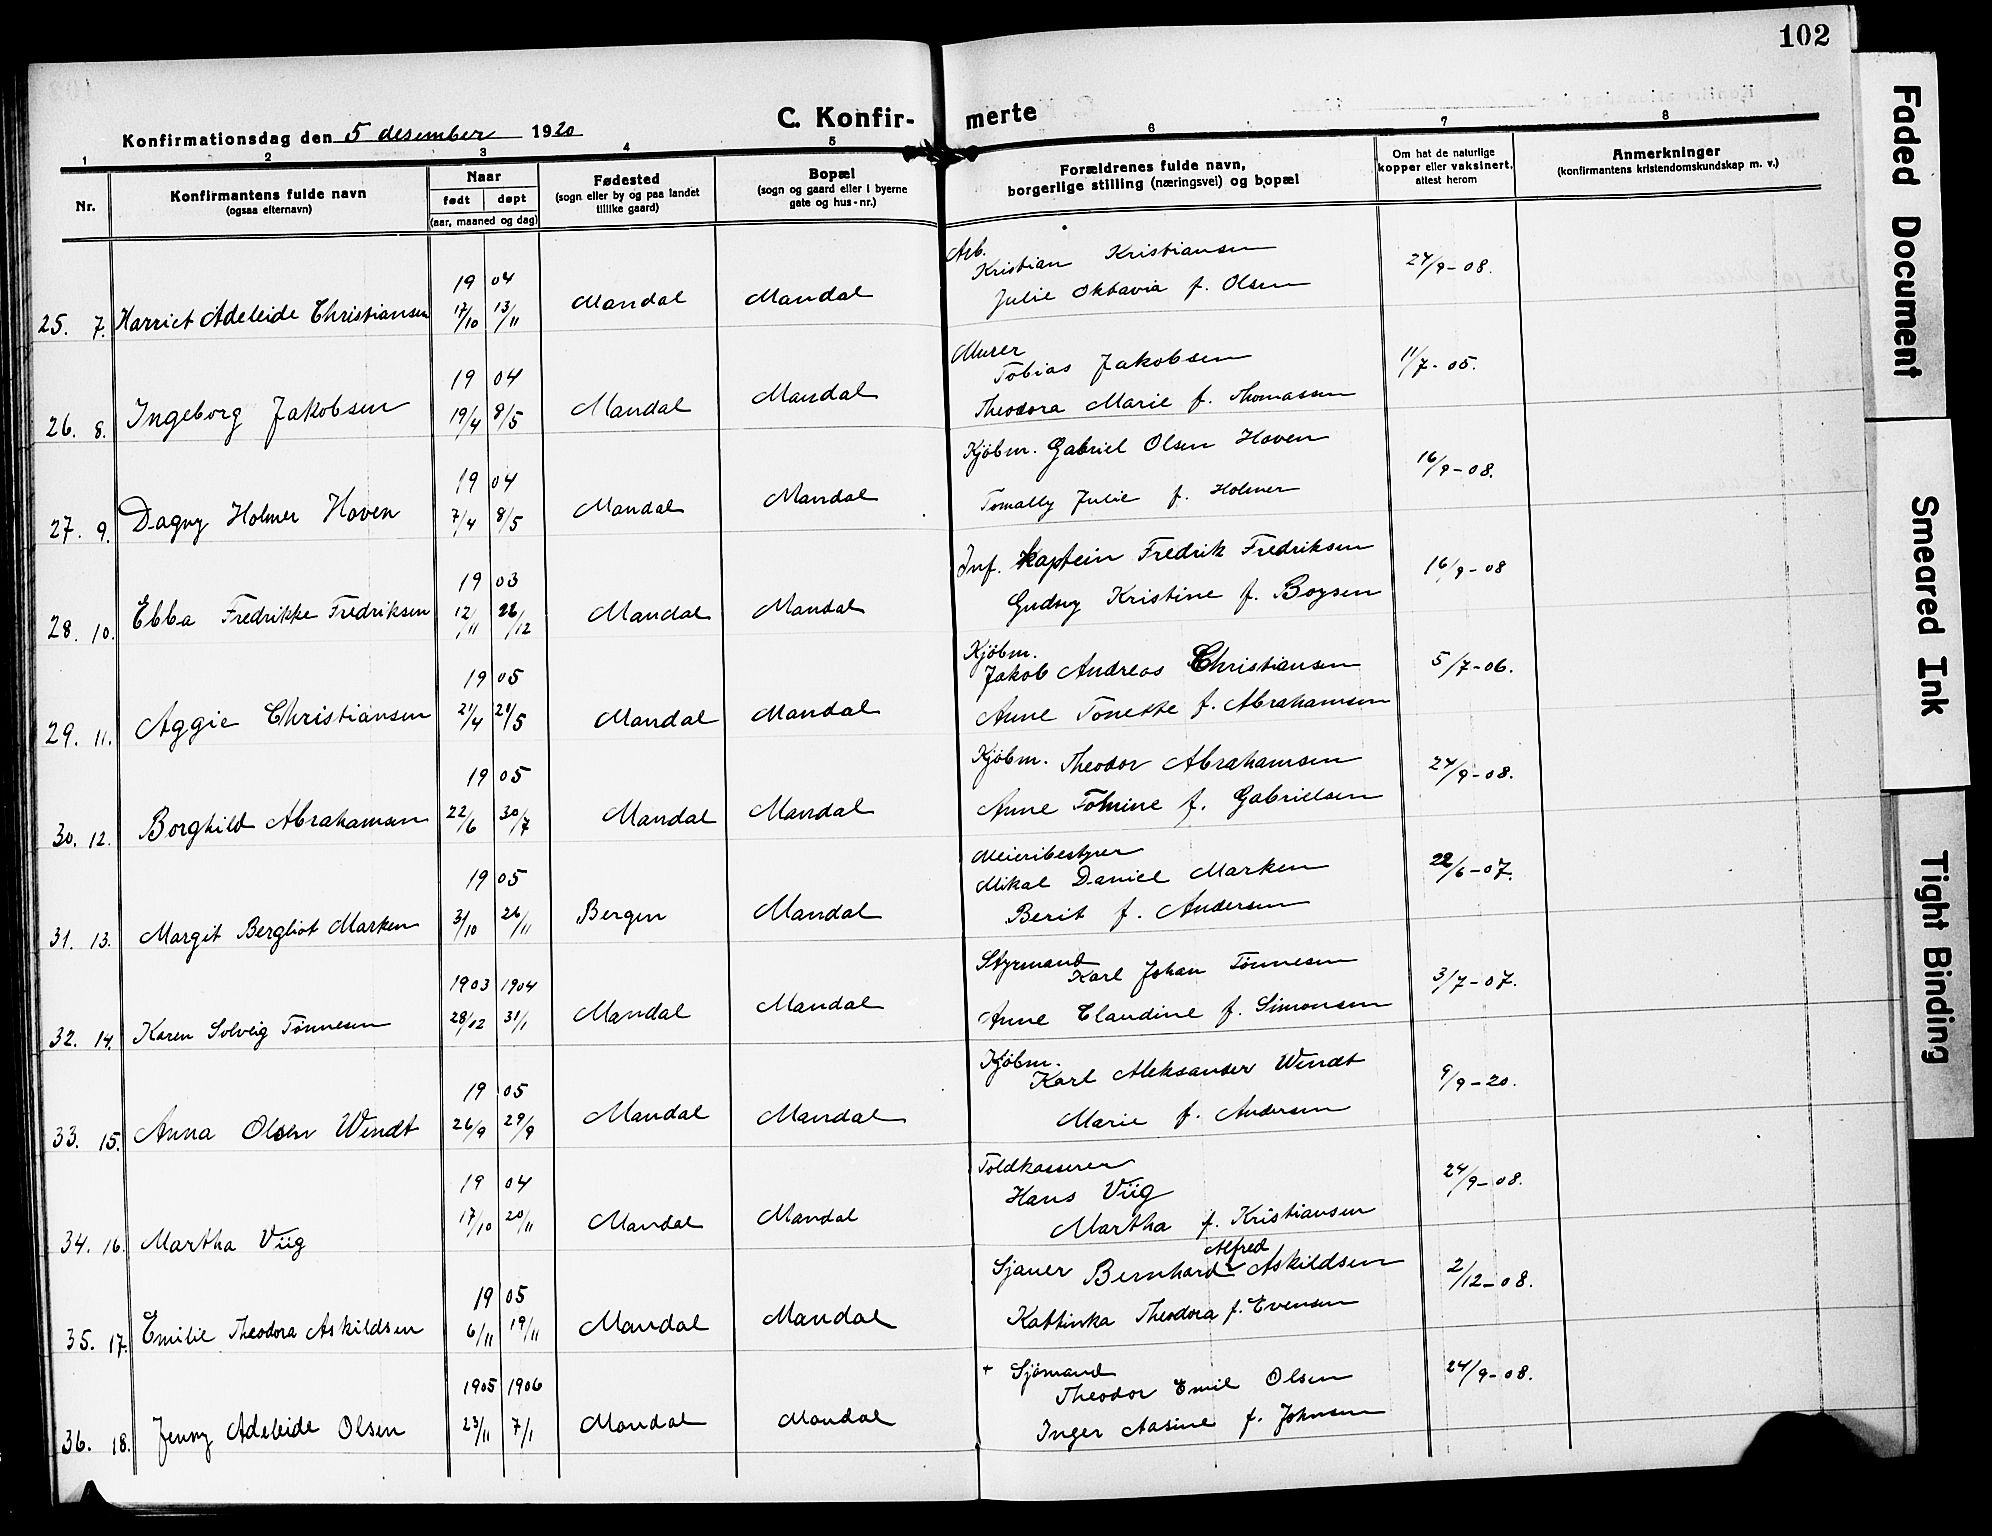 102
Konfirmationsdag den 5 desember 1920
C. Konfir- merte
1 2 3 4 5 6 7 8
Nr.
Konfirmantens fulde navn
(ogsaa efternavn)
Naar
født døpt
(aar, maaned og dag)
Fødested
(sogn eller by og paa landet
tillike gaard)
Bopæl
(sogn og gaard eller i byerne
gate og hus-nr.)
Forældrenes fulde navn,
borgerlige stilling (næringsvei) og bopæl
Om hat de naturlige
kopper eller vaksinert,
attest herom
Anmerkninger
(konfirmantens kristendomskundskap m. v.)
Arb.
19 04 Kristian Kristiansen 24/9-08.
25. 7. Harriet Adeleide Christiansen 17/10 13/11 Mandal Mandal Julie Oktavia f. Olsen
Murer
19 04 Tobias Jakobsen 11/7-05.
26. 8. Ingeborg Jakobsen 19/4 8/5 Mandal Mandal Theodora Marie f. Thomassen
19 04 Kjøbm. Gabriel Olsen Hoven 16/9-08.
27. 9. Dagny Holmer Hoven 7/4 8/5 Mandal Mandal Tomally Julie f. Holmer
19 03 Inf. Kaptein Fredrik Fredriksen 16/9-08
28. 10. Ebba Fredrikke Fredriksen 12/11 26/12 Mandal Mandal Gudny Kristine f. Boysen
Kjøbm.
19 05 Jakob Andreas Christiansen 5/7-06.
29. 11. Aggie Christiansen 21/4 21/5 Mandal Mandal Anne Tonette f. Abrahamsen
19 05 Kjøbm. Theodor Abrahamsen 24/9-08.
30. 12. Borghild Abrahamsen 22/6 30/7 Mandal Mandal Anne Tomine f. Gabrielsen
Meieribestyrer
19 05 Mikal Daniel Marken 22/6-07.
31. 13. Margit Bergliot Marken 3/10 26/11 Bergen Mandal Berit f. Andersen
Styrmand
1903 1904 Karl Johan Tönnesen 3/7-07.
32. 14. Karen Solveig Tönnesen 28/12 31/1 Mandal Mandal Anne Claudine f. Simonsen
Kjøbm.
19 05 Karl Aleksander Wendt 9/9-20.
33. 15. Anna Olsen Wendt 26/9 29/9 Mandal Mandal Marie f. Andersen
Toldkasserer
19 04 Hans Viig 24/9-08.
34. 16. Martha Viig 17/10 20/11 Mandal Mandal Martha f. Kristiansen
Alfred
19 05 Sjauer Bernhard Askildsen 2/12-08.
35. 17. Emilie Theodora Askildsen 6/11 19/11 Mandal Mandal Kattinka Theodora f. Evensen
+ Sjömand
1905 1906 Theodor Emil Olsen 24/9-08.
36. 18. Jenny Adeleide Olsen 23/11 7/1 Mandal Mandal Inger Aasine f. Johnsen
Faded Document
Smeared Ink
Tight Binding